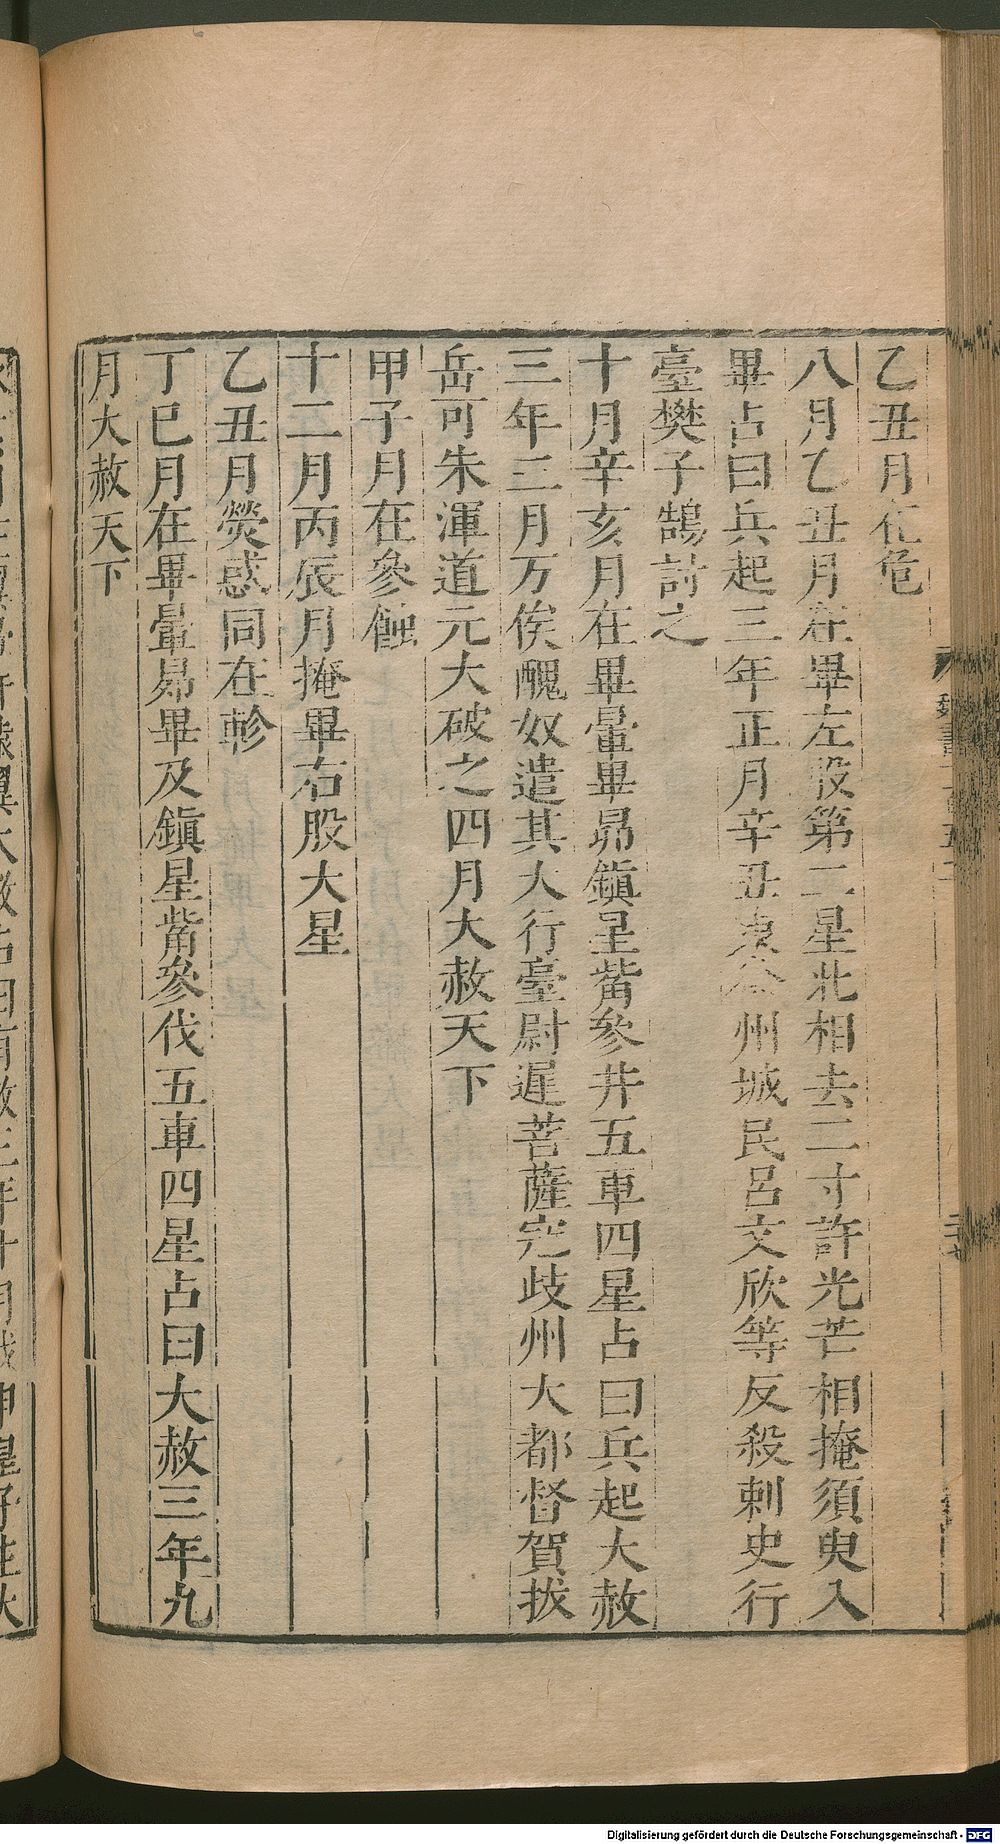 乙丑月在危
八月乙丑月在畢左股第二星北相去二寸許光芒相掩須臾入
畢占曰兵起三年正月辛丑東徐州城民呂文欣等反殺刺史行
臺樊子鵠討之
十月辛亥月在畢暈畢昴鎮星觜參井五車四星占曰兵起大赦
三年二月万俟醜奴遣其大行臺尉遲菩薩寇歧州大都督賀拔
岳可朱渾道元大破之四月大赦天下
甲子月在參蝕
十二月丙辰月掩畢右股大星
乙丑月熒惑同在軫
丁巳月在畢暈昴畢及鎮星觜參伐五車四星占曰大赦三年九
月大赦天下
Digitalisierung gefördert durch die Deutsche Forschungsgemeinschaft - DFG